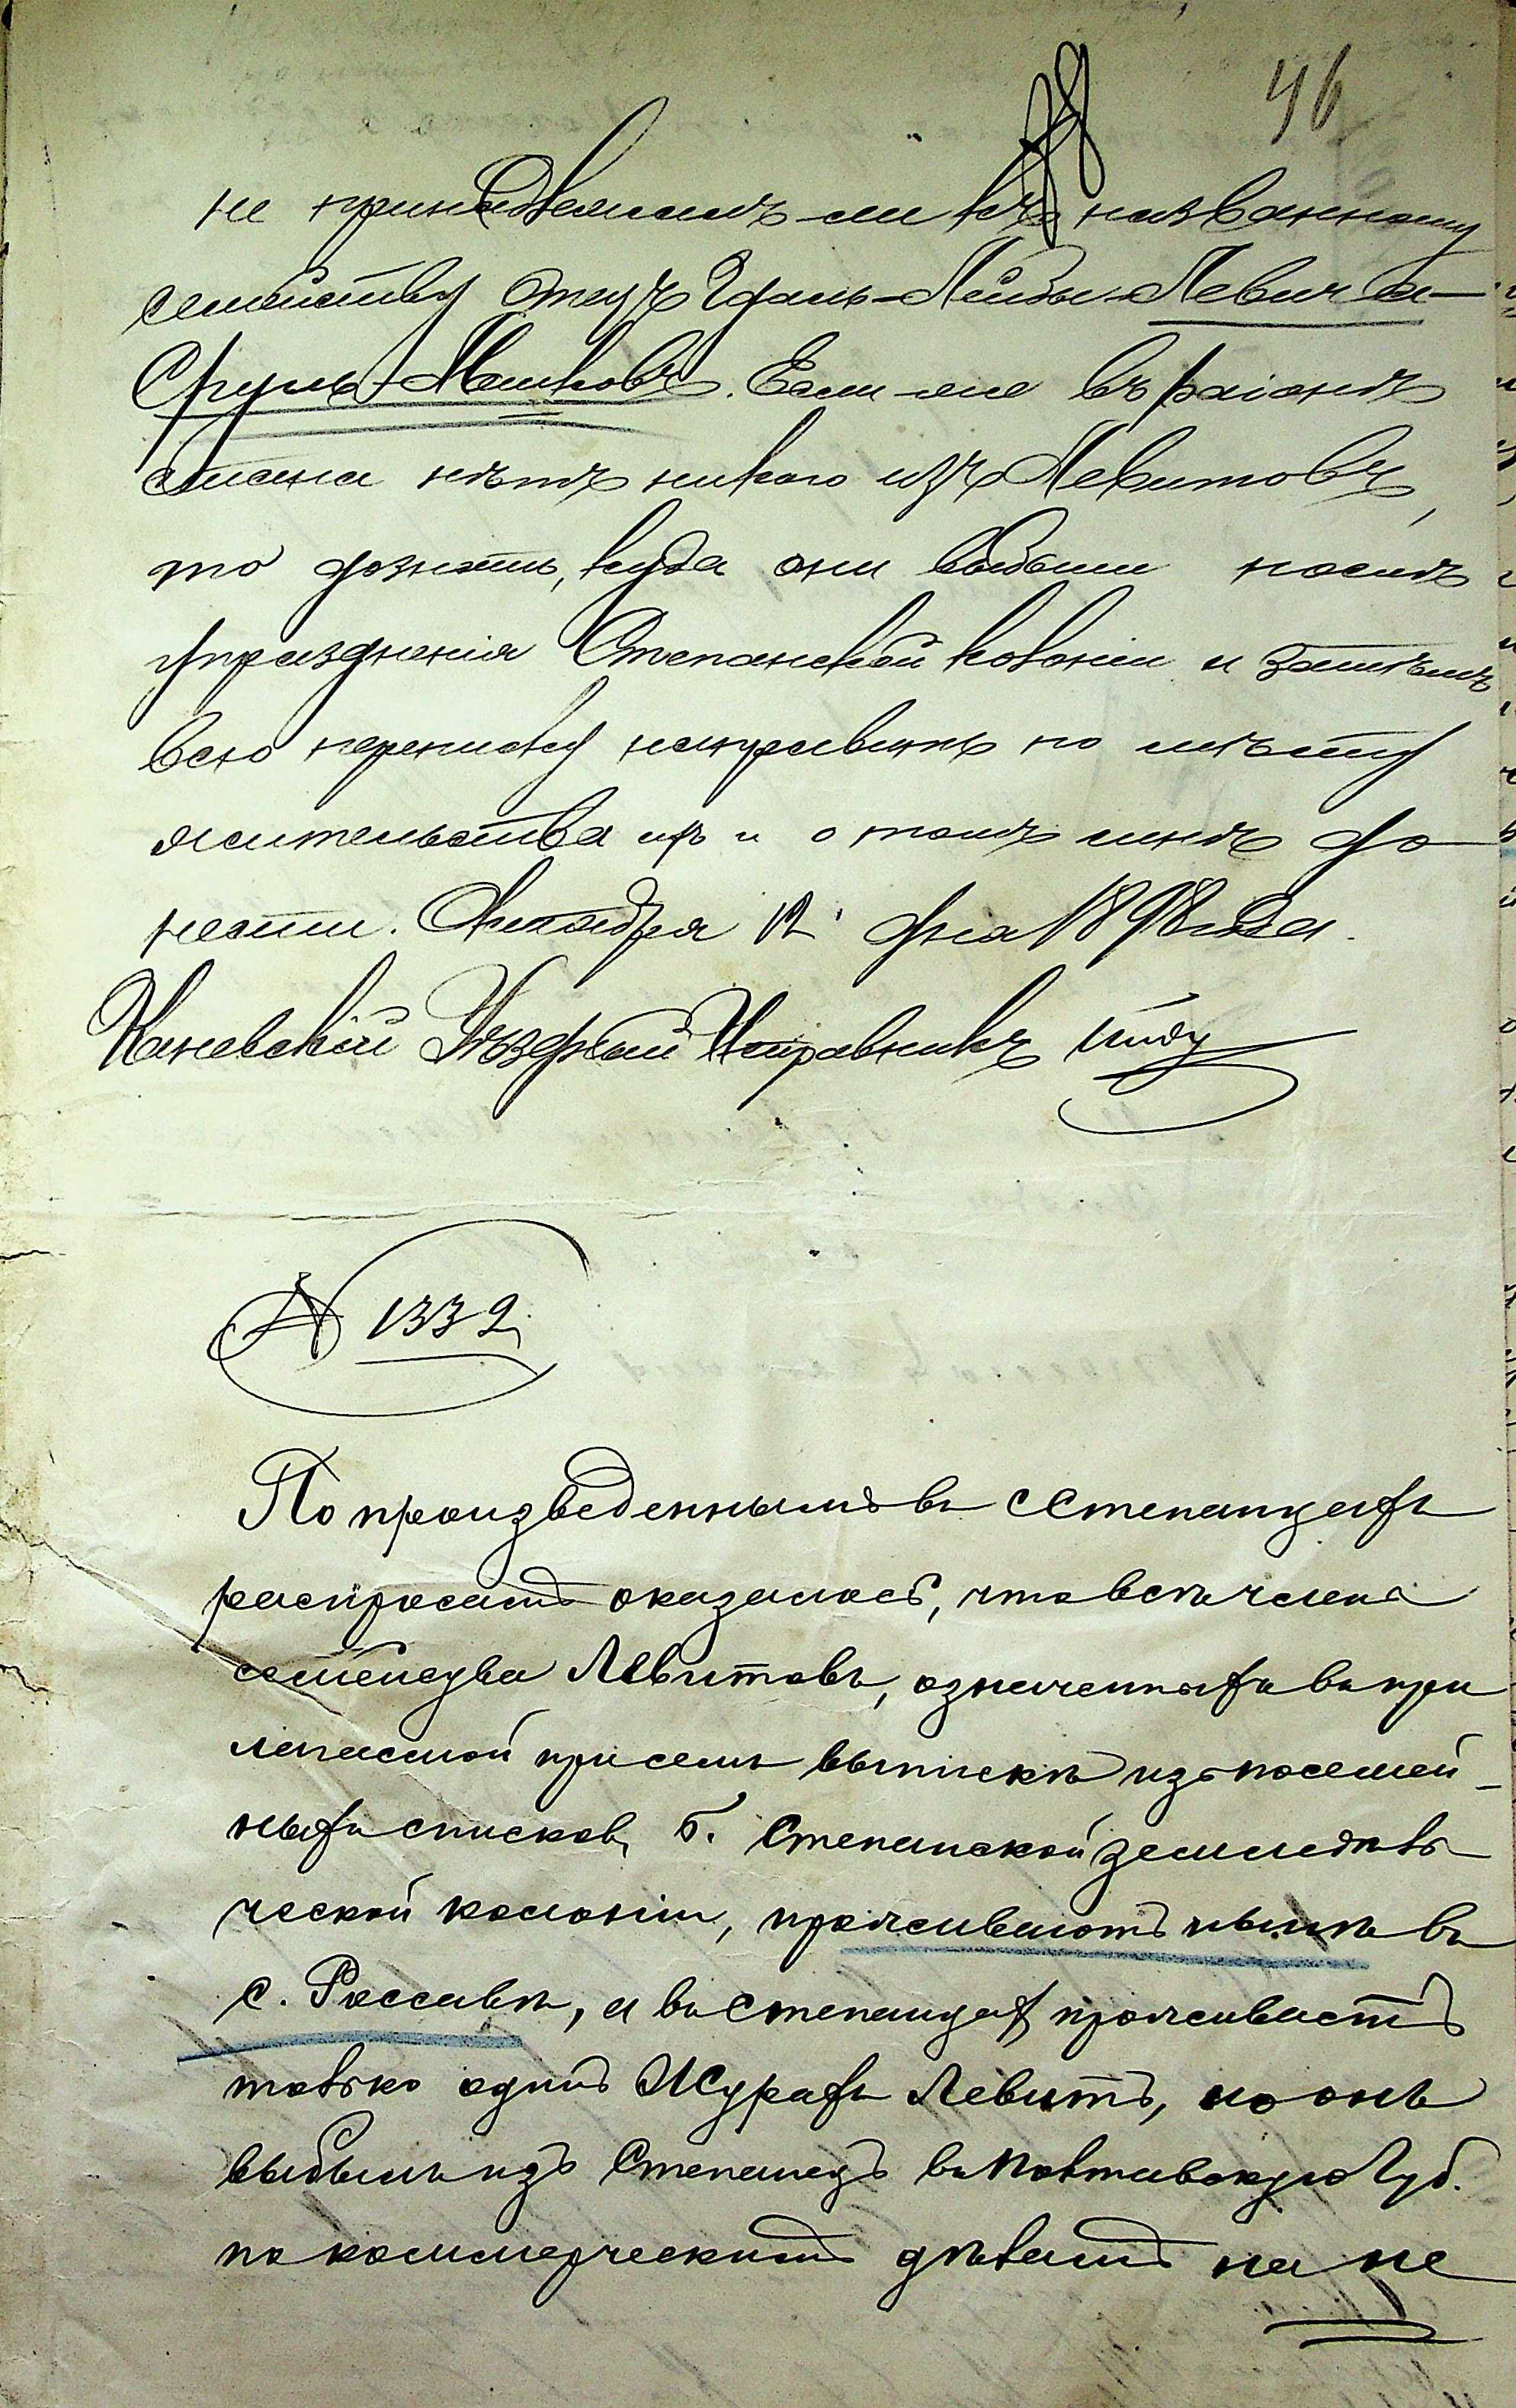 46
не принадлежитъ ли къ названному
семейству отецъ Гдаль-Лейбы Левита
Сруль-Мошковъ. Если же въ раіонѣ
стана нѣтъ никого изъ Левитовъ,
то дознать, куда они выбыли послѣ
упраздненія Степанской колоніи и затѣмъ
всю переписку направить по мѣсту
жительства ихъ и о томъ мнѣ до
нести. Октября 12 дня 1898 года.
Каневскій Уѣздный Исправникъ
№ 1332
По произведеннымъ въ с Степанцахъ
распросамъ оказалось, что всѣ члены
семейства Левитовъ, означенныхъ въ при
лагаемой при семъ выпискѣ изъ посемей-
ныхъ списковъ б. Степанской земледѣль
ческой колоніи, проживаютъ нынѣ въ
с. Россавѣ, а въ Степанцах проживаетъ
только одинъ Журахъ Левитъ, но онъ
выбылъ изъ Степанецъ въ Полтавскую Губ.
по коммерческимъ дѣламъ на не